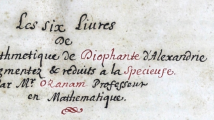 Les six Livres
De
thmetique de Diophante d'Alexandrie
gmentez & reduits à la Specieuse.
Par Mr. Ozanam Professeur
en Mathematique.